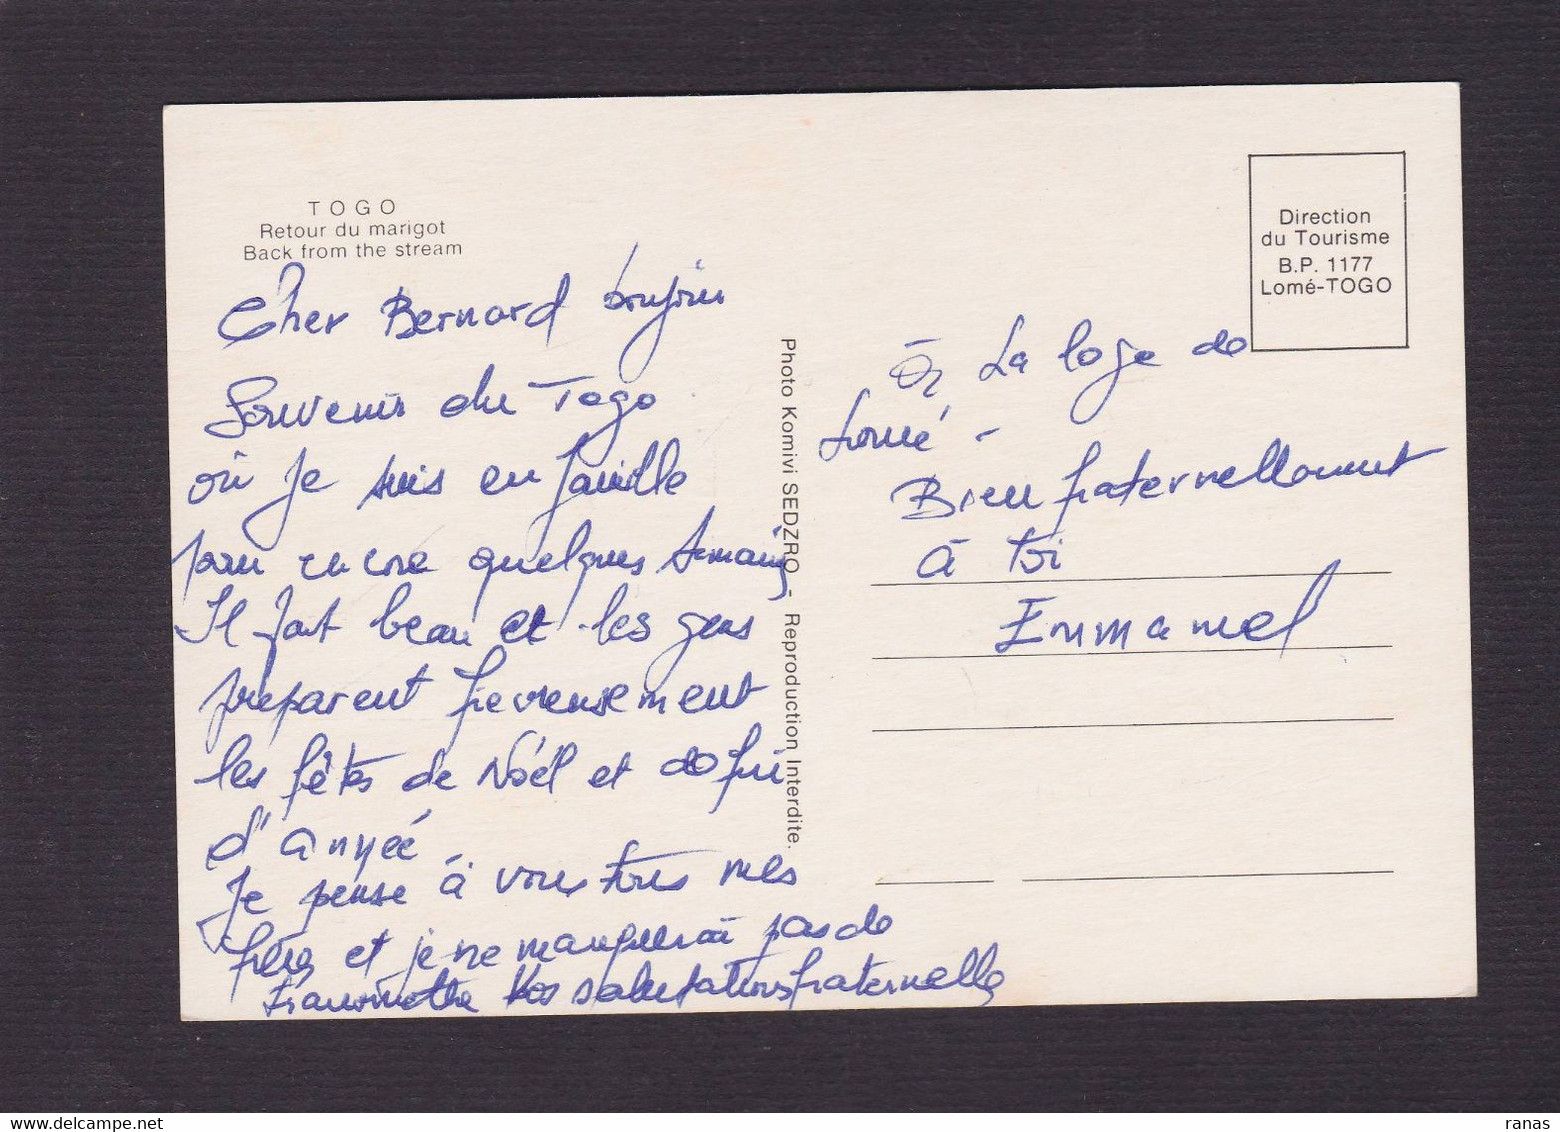 TOGO
Retour du marigot
Back from the stream
Cher Bernard bonjour
Souvenir du Togo
où je suis en famille
pour encore quelques semaines
Il fait beau et les gens
preparent fievreusement
les fêtes de Noël et de fin
d'année
Je pense à vous tous mes
frères et je ne manquerai pas de
transmettre vos salutations fraternelles
Photo Komivi SEDZRO - Reproduction Interdite.
Direction
du Tourisme
B.P. 1177
Lomé-TOGO
La loge de
Lomé -
Bien fraternellement
à toi
Emmanuel
ranas